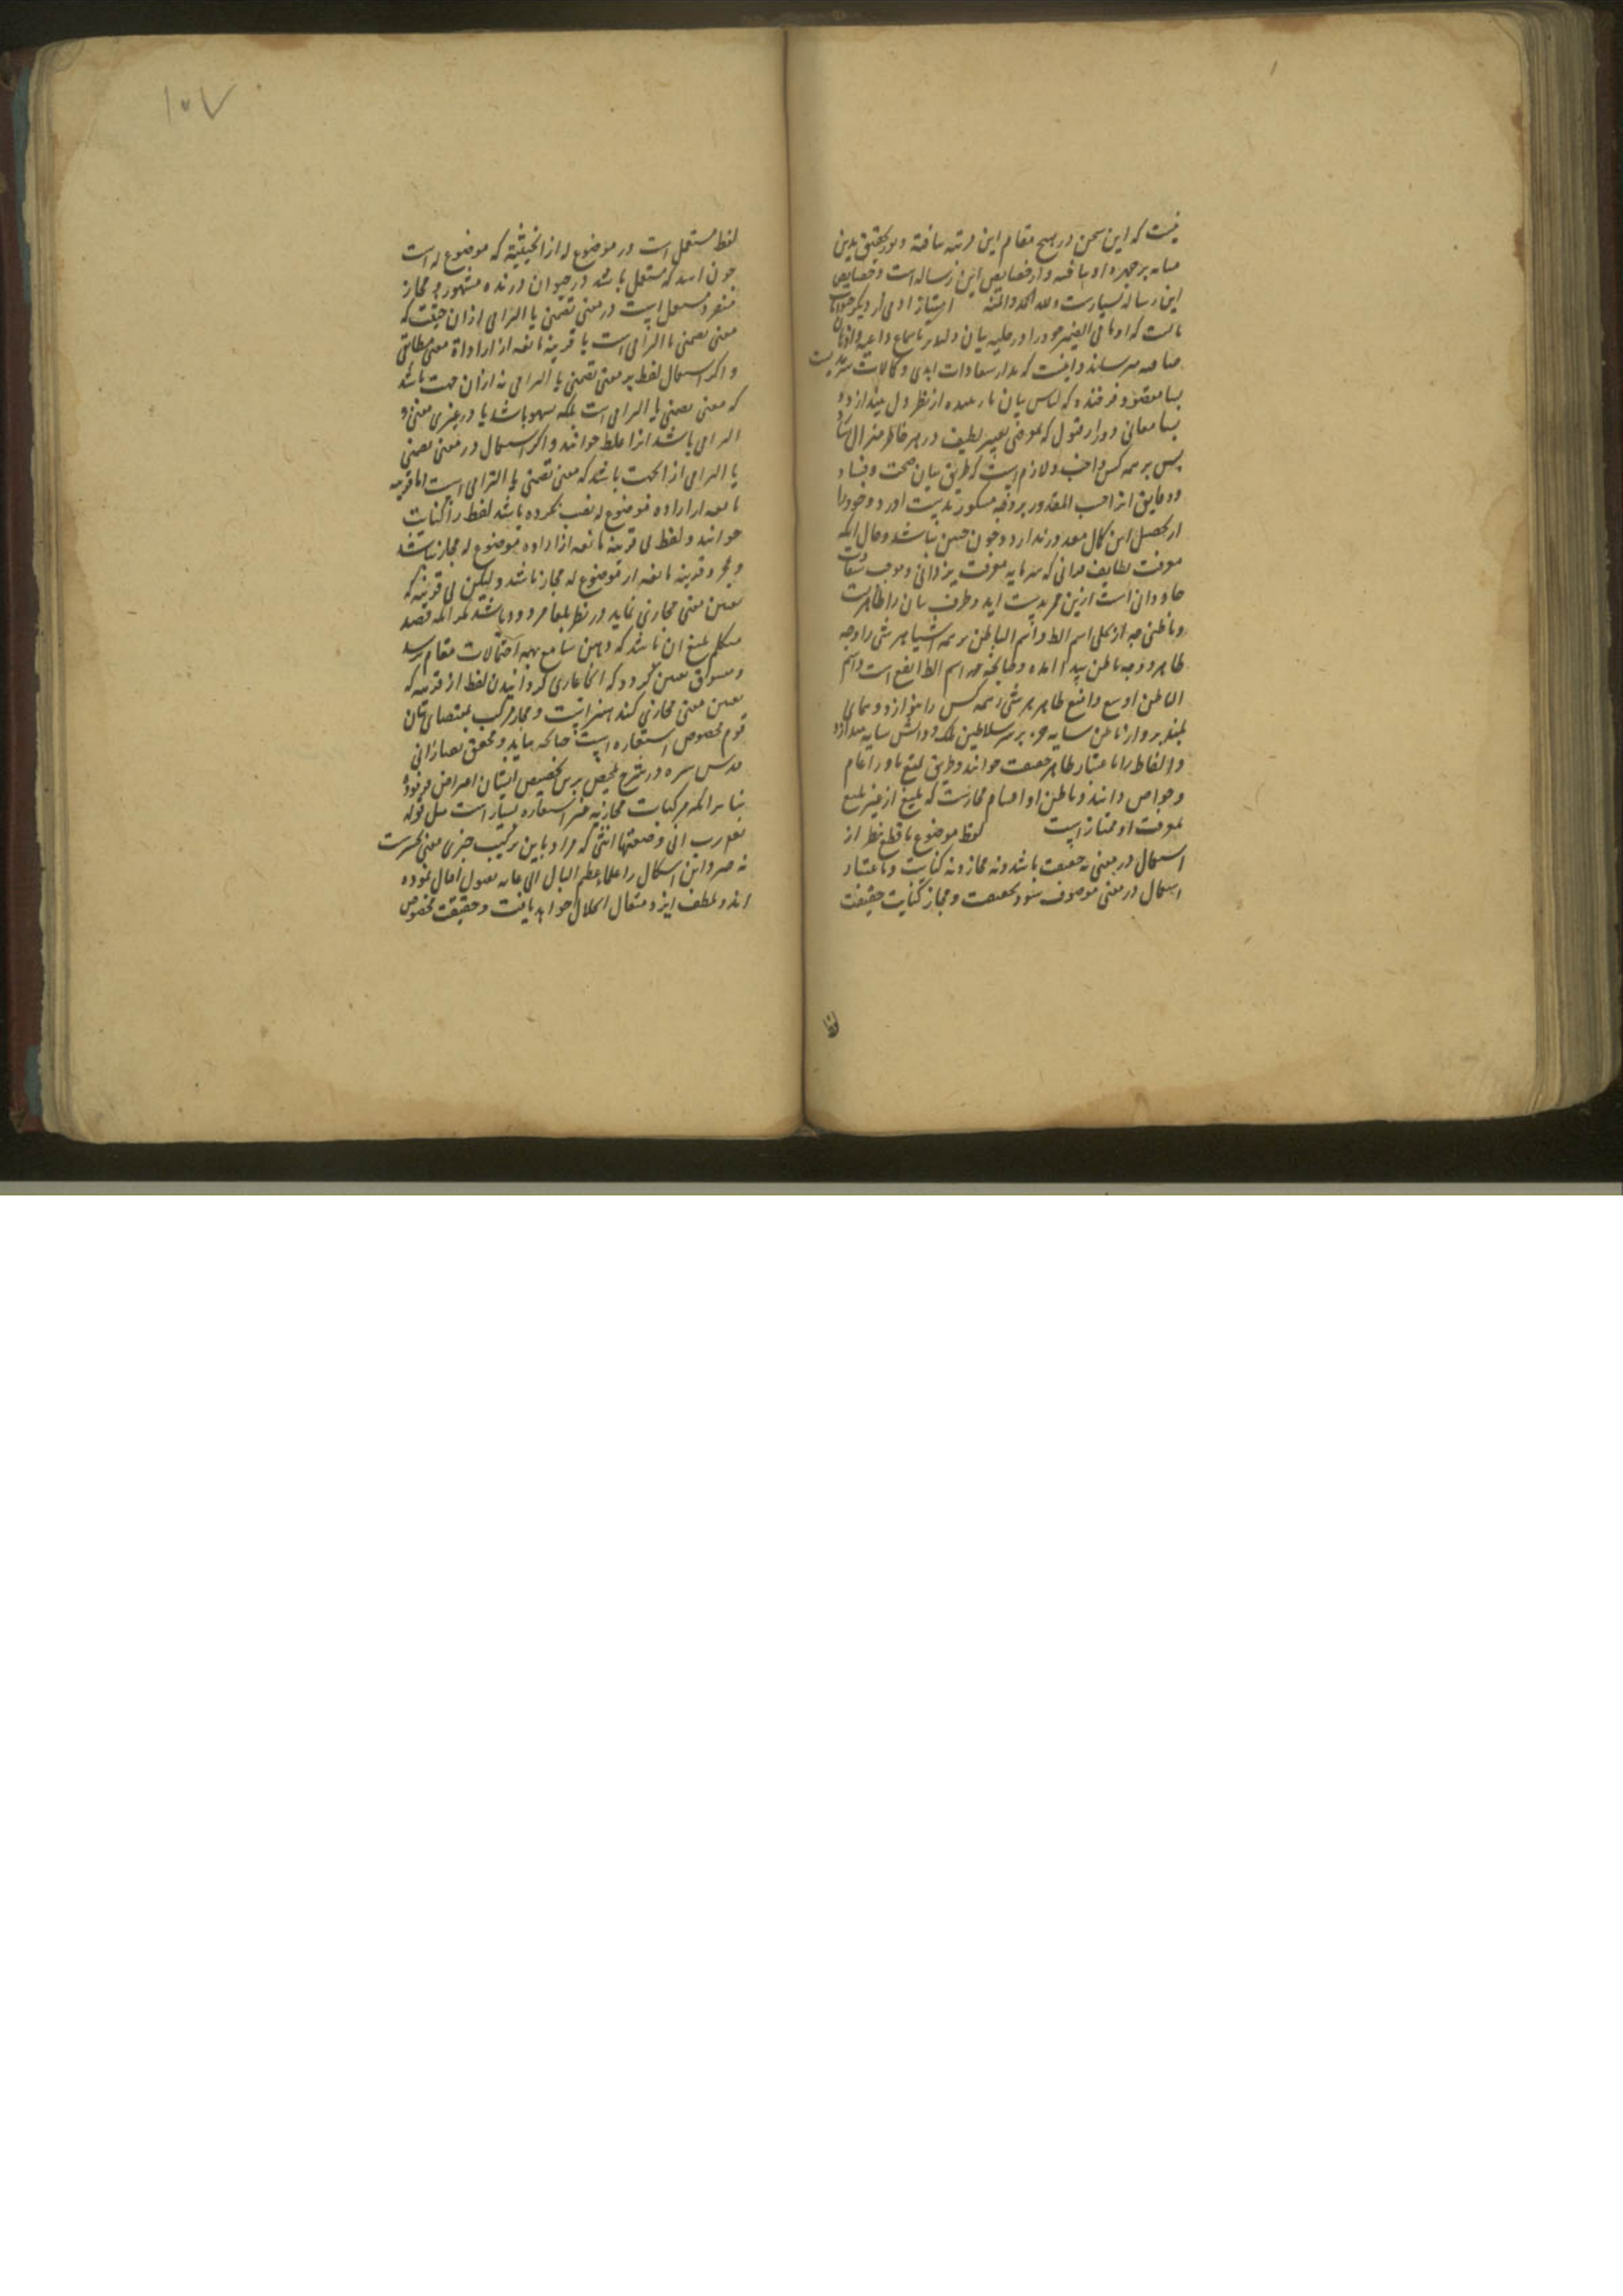 نیست که این سخن در هیچ مقام این مرتبه نیافته و نور تحقیق بدین
مثابه بر چهره او نتافته و از خصایص این رساله است و خصایص
این رساله بسیارست ولله الحمد والمنه امتیاز ادمی از دیگر حیوانات
بانست که او ما فی الضمیر خود را در حلیه بیان
و اینست که مدار سعادات ابدی و کمالات سرمدیست
بسا مقصود فرخنده که لباس بیان از نظر دل میندازد و
بسا معانی دور از قبول که بموضی تعبیر لطیف در هر خاطر منزل
پس بر همه کس واجب و لازم است که طریق بیان صحت و فساد
و دقایق انرا حسب المقدور بر وجه
از تحصیل این کمال معذور ندارد و چون چنین نباشد و حال انکه
معرفت لطایف قرانی که سرمایه معرفت یزدانی و موجب سعادت
جاودانی است ازین
و باطنی چه از تجلی اسم الظ و اسم الباطن بر همه اشیا هر شی را وجه
ظاهر و وجه باطن پیدا امده و چنانچه اسم الظ انفع است و اسم
الباطن اوسع و انفع ظاهر هر شی همه کس را بنوازد و همای
بلند پرواز باطن سایه جز بر سر سلاطین ملک دانش سایه نیندازد
و الفاظ را باعتبار ظاهر حقیقت خوانند و طریق او را عام
و خواص دانند و باطن او اقسام مجازست که بلیغ از غیر بلیغ
بمعرفت او ممتاز است لفظ موضوع با قطع نظر از
استعمال در معنی نه حقیقت باشد و نه مجاز و نه کنایت و باعتبار
استعمال در معنی موصوف شود بحقیقت و مجاز کنایت حقیقت
لفظ
۱۰۷
لفظ مستعمل است در موضوع له از انحیثیة که موضوع له است
چون اسد که مستعمل باشد در حیوان درنده مشهور و مجاز
منفرد مستعمل است در معنی تضمنی یا التزامی از ان حیثیت که
معنی تضمنی یا التزامی است با قرینه مانعه از اراداة معنی مطابقی
و اکر استعمال لفظ بر معنی تضمنی یا التزامی نه از ان جهت باشد
که معنی تضمنی یا التزامی است بلکه سهو باشد یا در غیر معنی و
التزامی باشد انرا غلط خوانند و اکر استعمال در معنی تضمنی
یا التزامی از انجهت باشد که معنی تضمنی یا التزامی است اما قرینه
مانعه از اراده موضوع له نصب نکرده باشد لفظ را کنایت
خوانند و لفظ بی قرینه مانعه از اراده موضوع له مجاز نباشد
و بمجرد قرینه مانعه از موضوع له مجاز باشد و لیکن بی قرینه که
تعیین معنی مجازی نماید در نظر بلغا مردود باشد مکر انکه قصد
متکلم بلیغ ان باشد که ذهن سامع بهمه احتمالات مقام رسد
که انجا عاری کردانیدن لفظ از قرینه که
تعیین معنی مجازی کند هنرانیست و مجاز مرکب بمقتضای بیان
قوم مخصوص استعاره است چنانکه بیاید و محقق تفتازانی
قدس سره در شرح تلخیص برین تخصیص ایشان اعتراض فرموده
بنا بر انکه مرکبات مجازیه غیر استعاره بسیار است مثل قوله
تعالی رب انی وضعتها انثی که مراد باین ترکیب خبری معنی تحسرست
نه خبر و این اشکال را علماء عظیم البال الی غایه بقبول اقبال نموده
اند و بلطف ایزد متعال انحلال خواهد یافت و حقیقت مخصوص